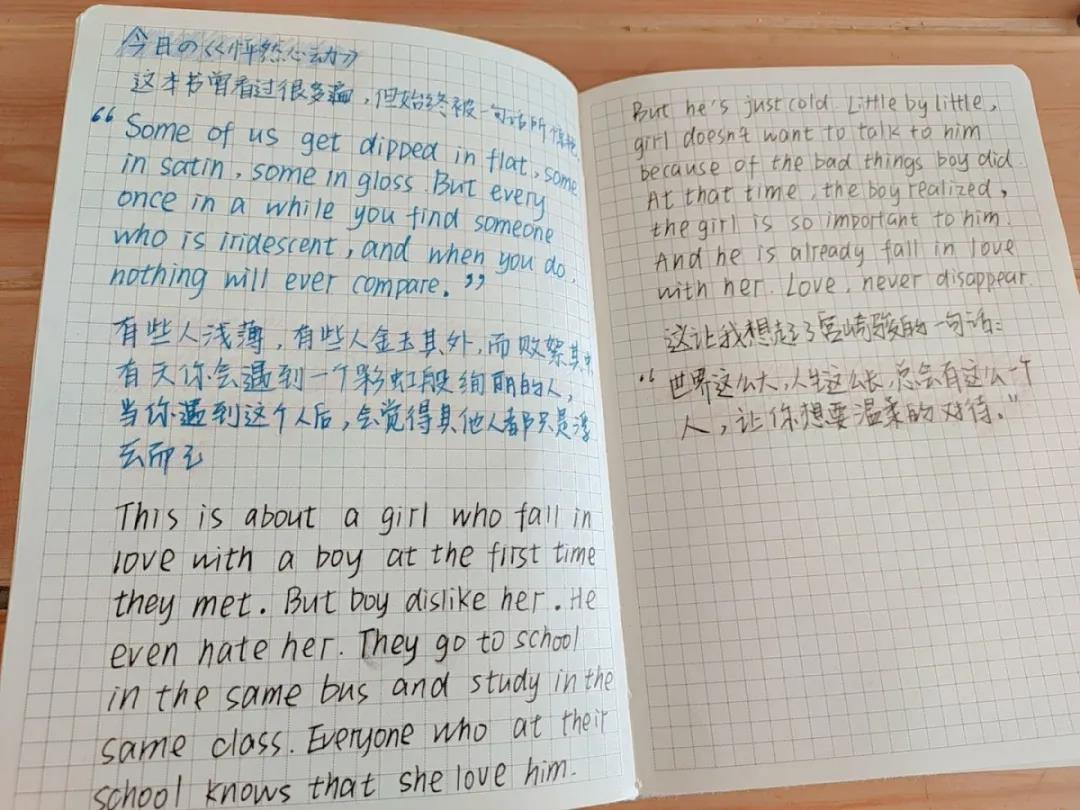 今日の《怦然心动》
这本书曾看过很多遍，但始终被一句话所惊艳
“Some of us get dipped in flat, some
in satin, some in gloss. But every
once in a while you find someone
who is iridescent, and when you do,
nothing will ever compare.”
有些人浅薄，有些人金玉其外，而败絮其中
有天你会遇到一个彩虹般绚丽的人，
当你遇到这个人后，会觉得其他人都只是浮
云而已
This is about a girl who fall in
love with a boy at the first time
they met. But boy dislike her. He
even hate her. They go to school
in the same bus and study in the
same class. Everyone who at their
school knows that she love him.
But he's just cold. Little by little,
girl doesn't want to talk to him
because of the bad things boy did.
At that time, the boy realized,
the girl is so important to him.
And he is already fall in love
with her. Love, never disappear.
这让我想起了宫崎骏的一句话：
“世界这么大，人生这么长，总会有这么一个
人，让你想要温柔的对待。”